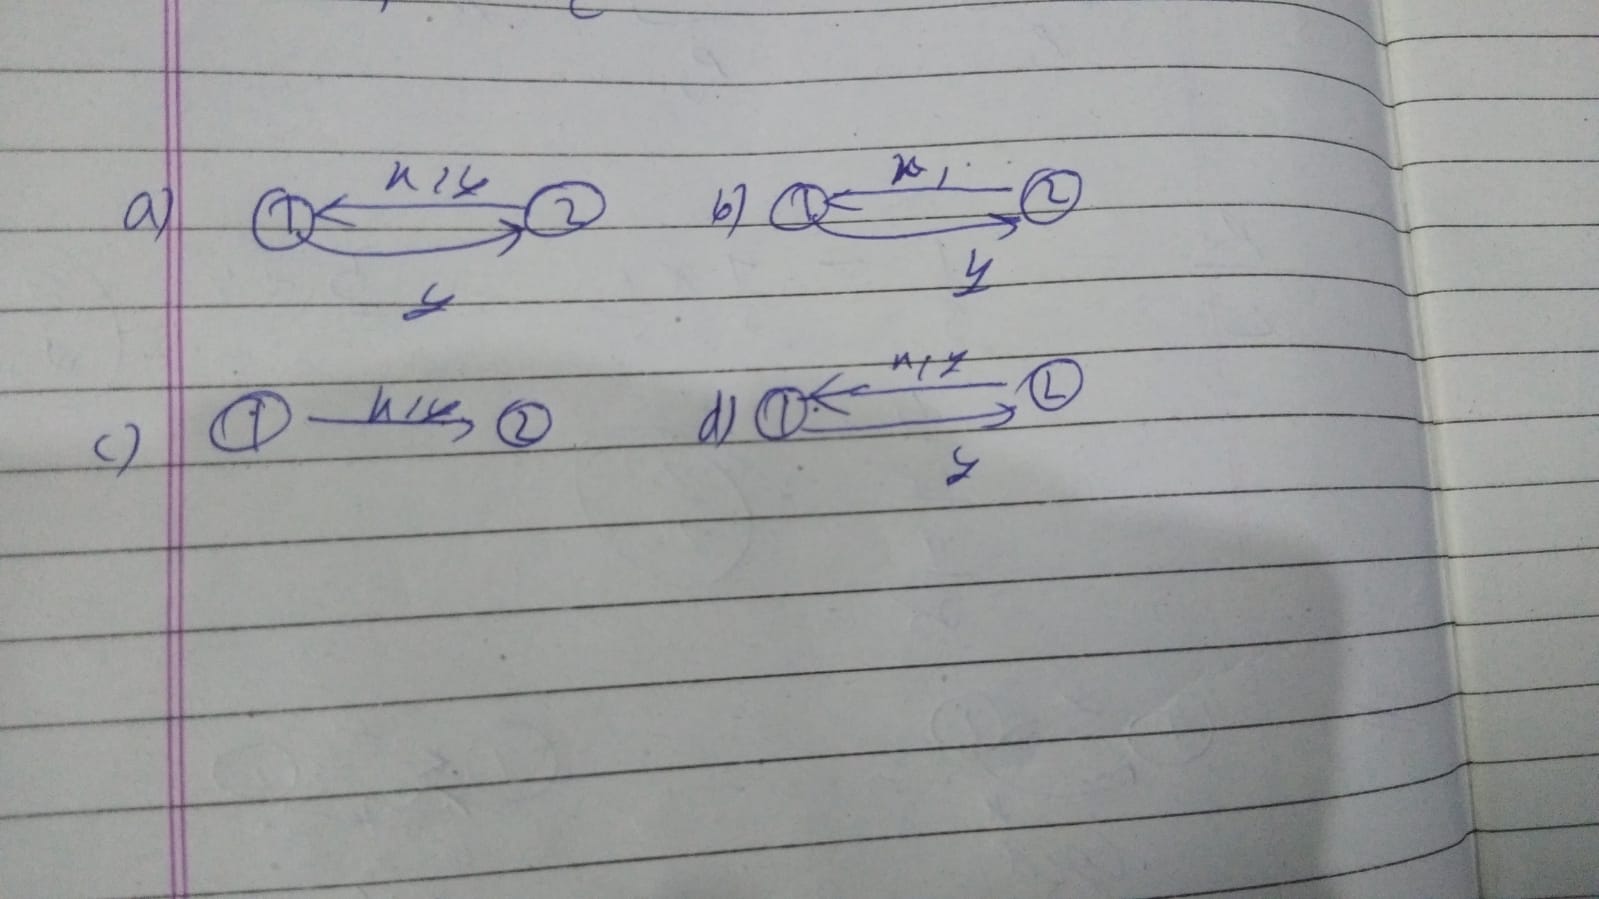 a) 1 x, y 2 b) 1 x, 2
y y
c) 1 x, y 2 d) 1 x, y 2
y